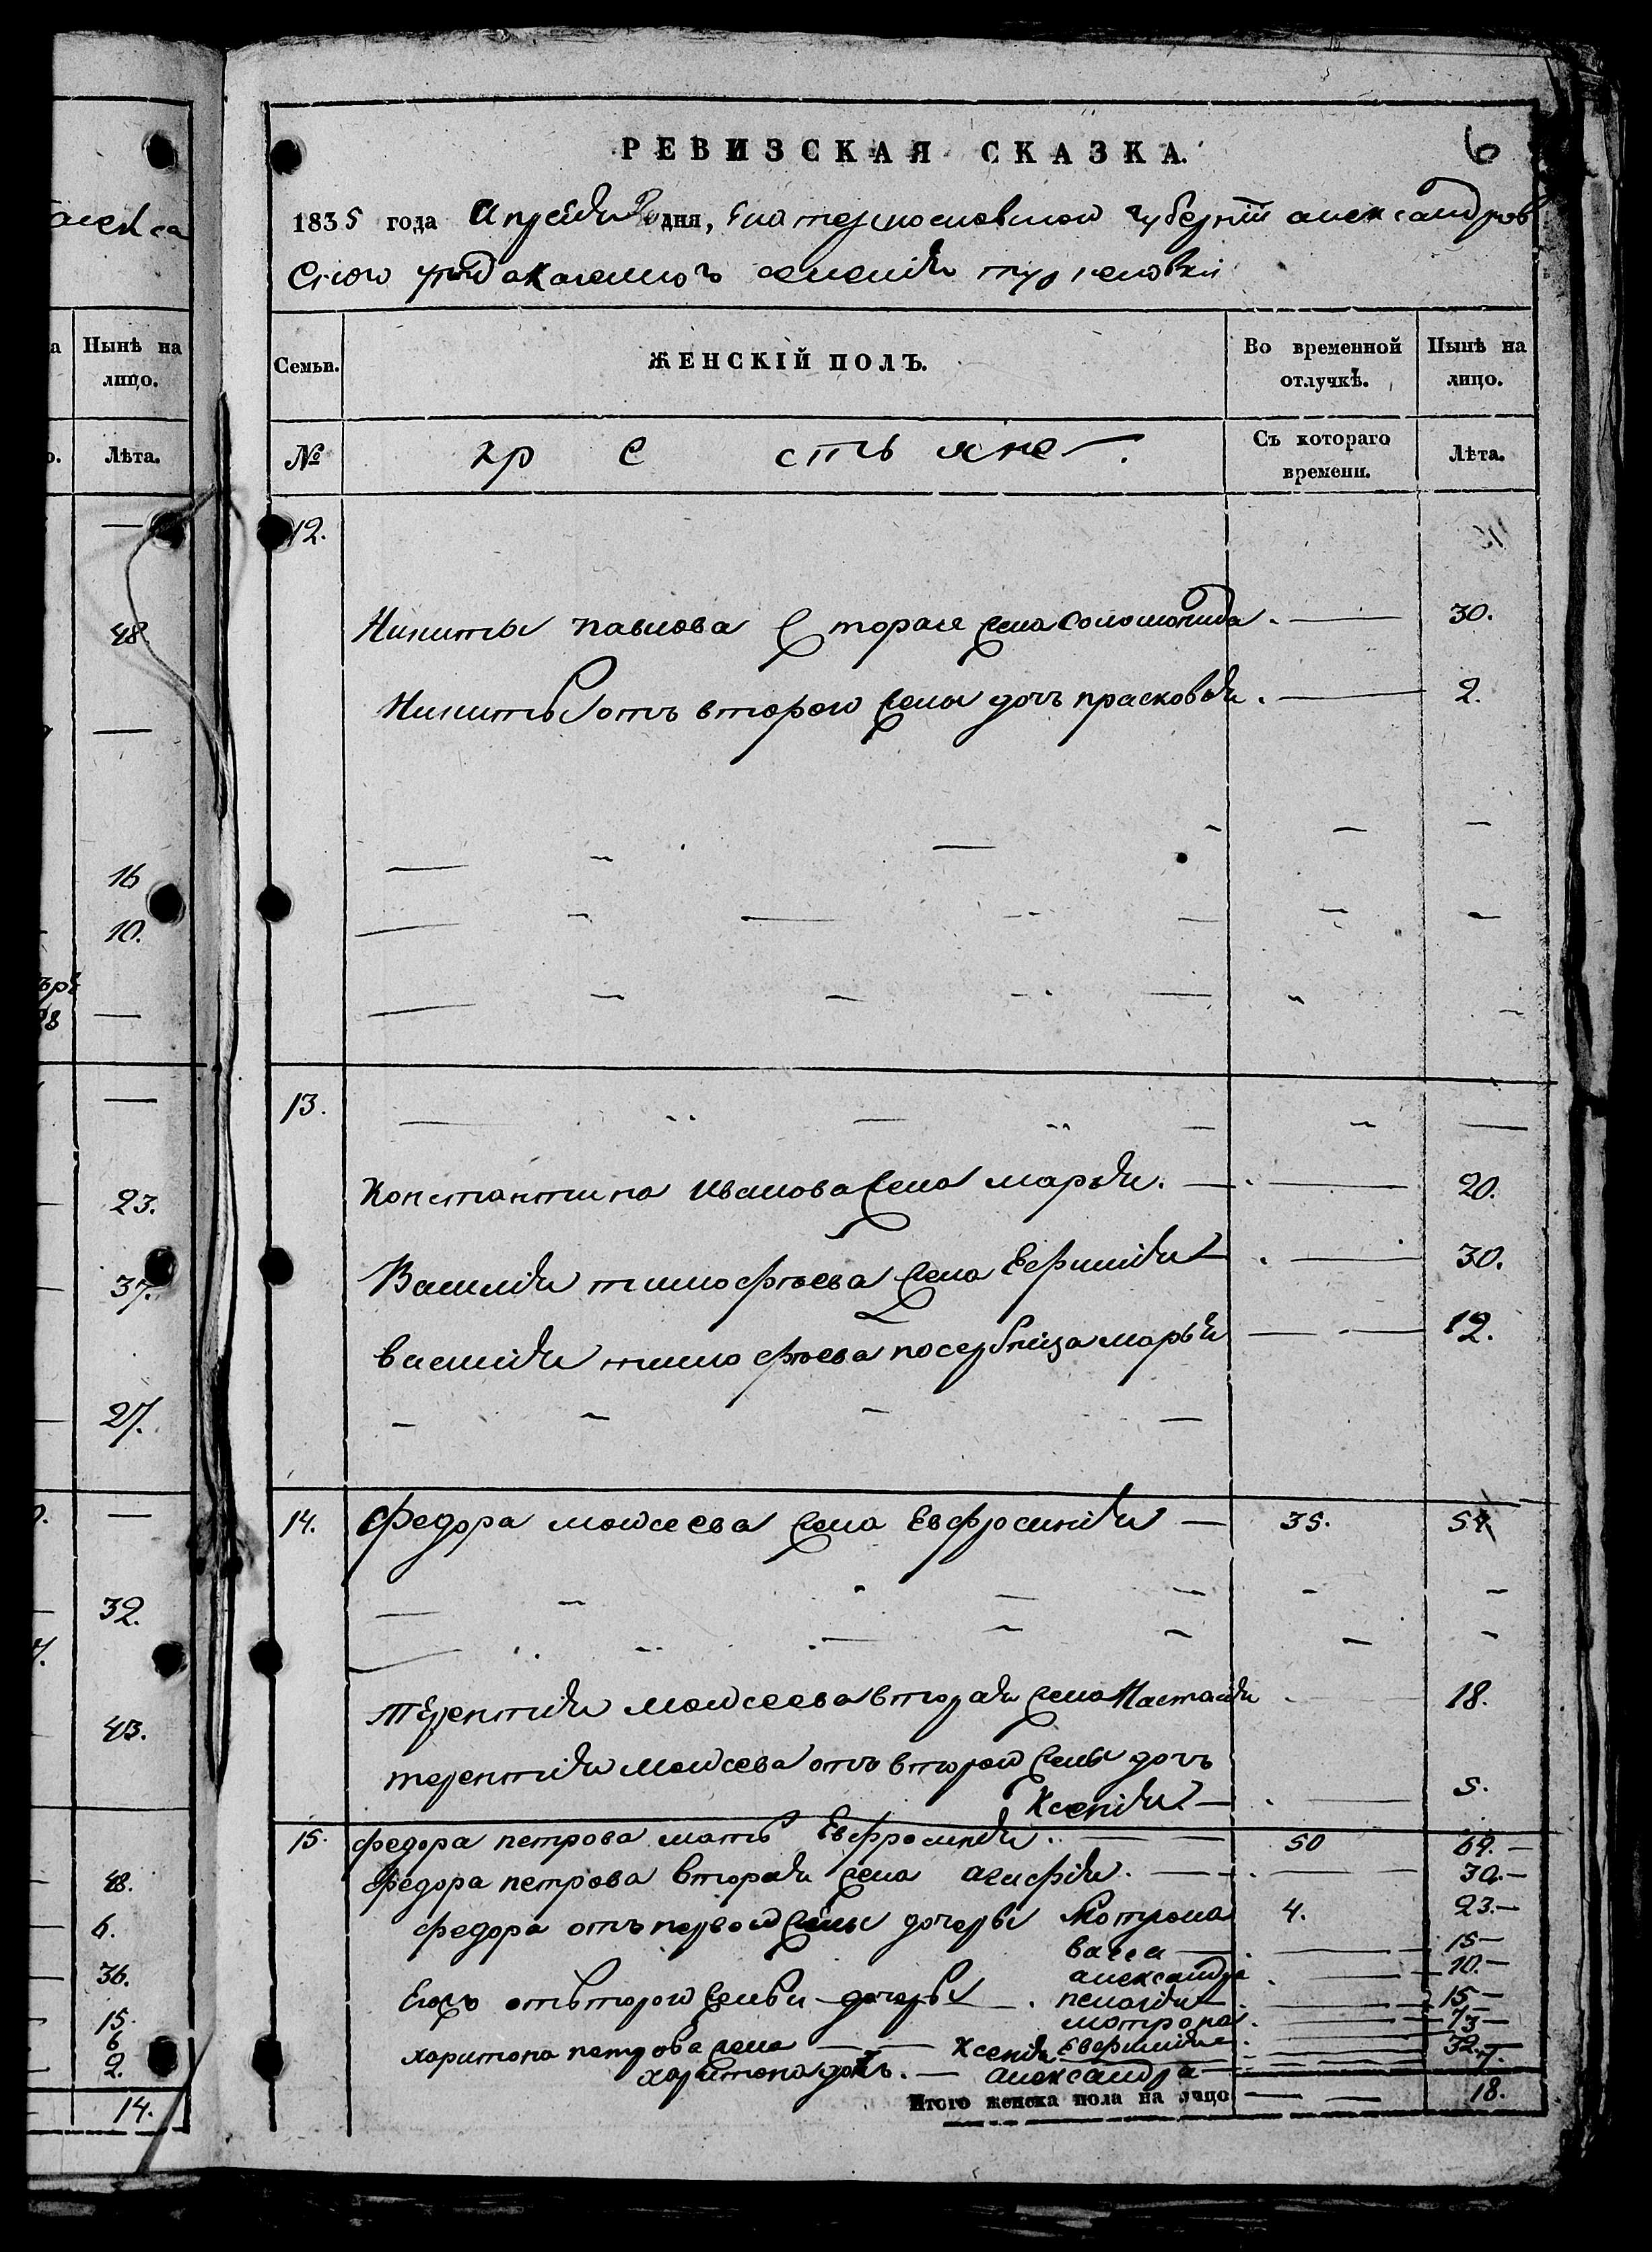 аленса
6
РЕВИЗСКАЯ СКАЗКА.
1835 года Апреля дня, Екатеринославской губернiи александров
Скаго уезда казенного селенiя
а Нынѣ на лицо.
Лѣта.
Семьи.
ЖЕНСКІЙ ПОЛЪ.
Во временной отлучкѣ.
Нынѣ на лицо.
№
кр е стьяне.
Съ котораго времени.
Лѣта.
48
16
10.
23.
37.
27.
32.
43.
48.
6.
36.
15.
6
2.
14.
12.
Никиты павлова вторая жена Соломонида. — 30.
Никиты отъ второй жены дочь прасковья. — 2.
13.
Константина иванова жена марья. — 20.
Василия тимофеева жена Ефимия — 30.
василия тимофеева марья — 12.
14. Федора моисеева жена Евфросиния — 35. 54
терентия моисеева вторая жена Настасия 18.
терентия моисева отъ второй жены дочь
Ксения — 5.
15. федора петрова мать Евфросиния. — 50 69.—
Федора петрова вторая жена агафия. — 30.—
федора отъ первой жены дочеры Мотрона 4. 23.—
васса — 15—
александра 10.—
Егожъ отъ второй жены дочеры пелагия 15—
мотрона. 13—
харитона петрова жена — Ксения Евфимия 32.
харитона дочь. — александра — 7.
Итого женска пола на лицо — 18.